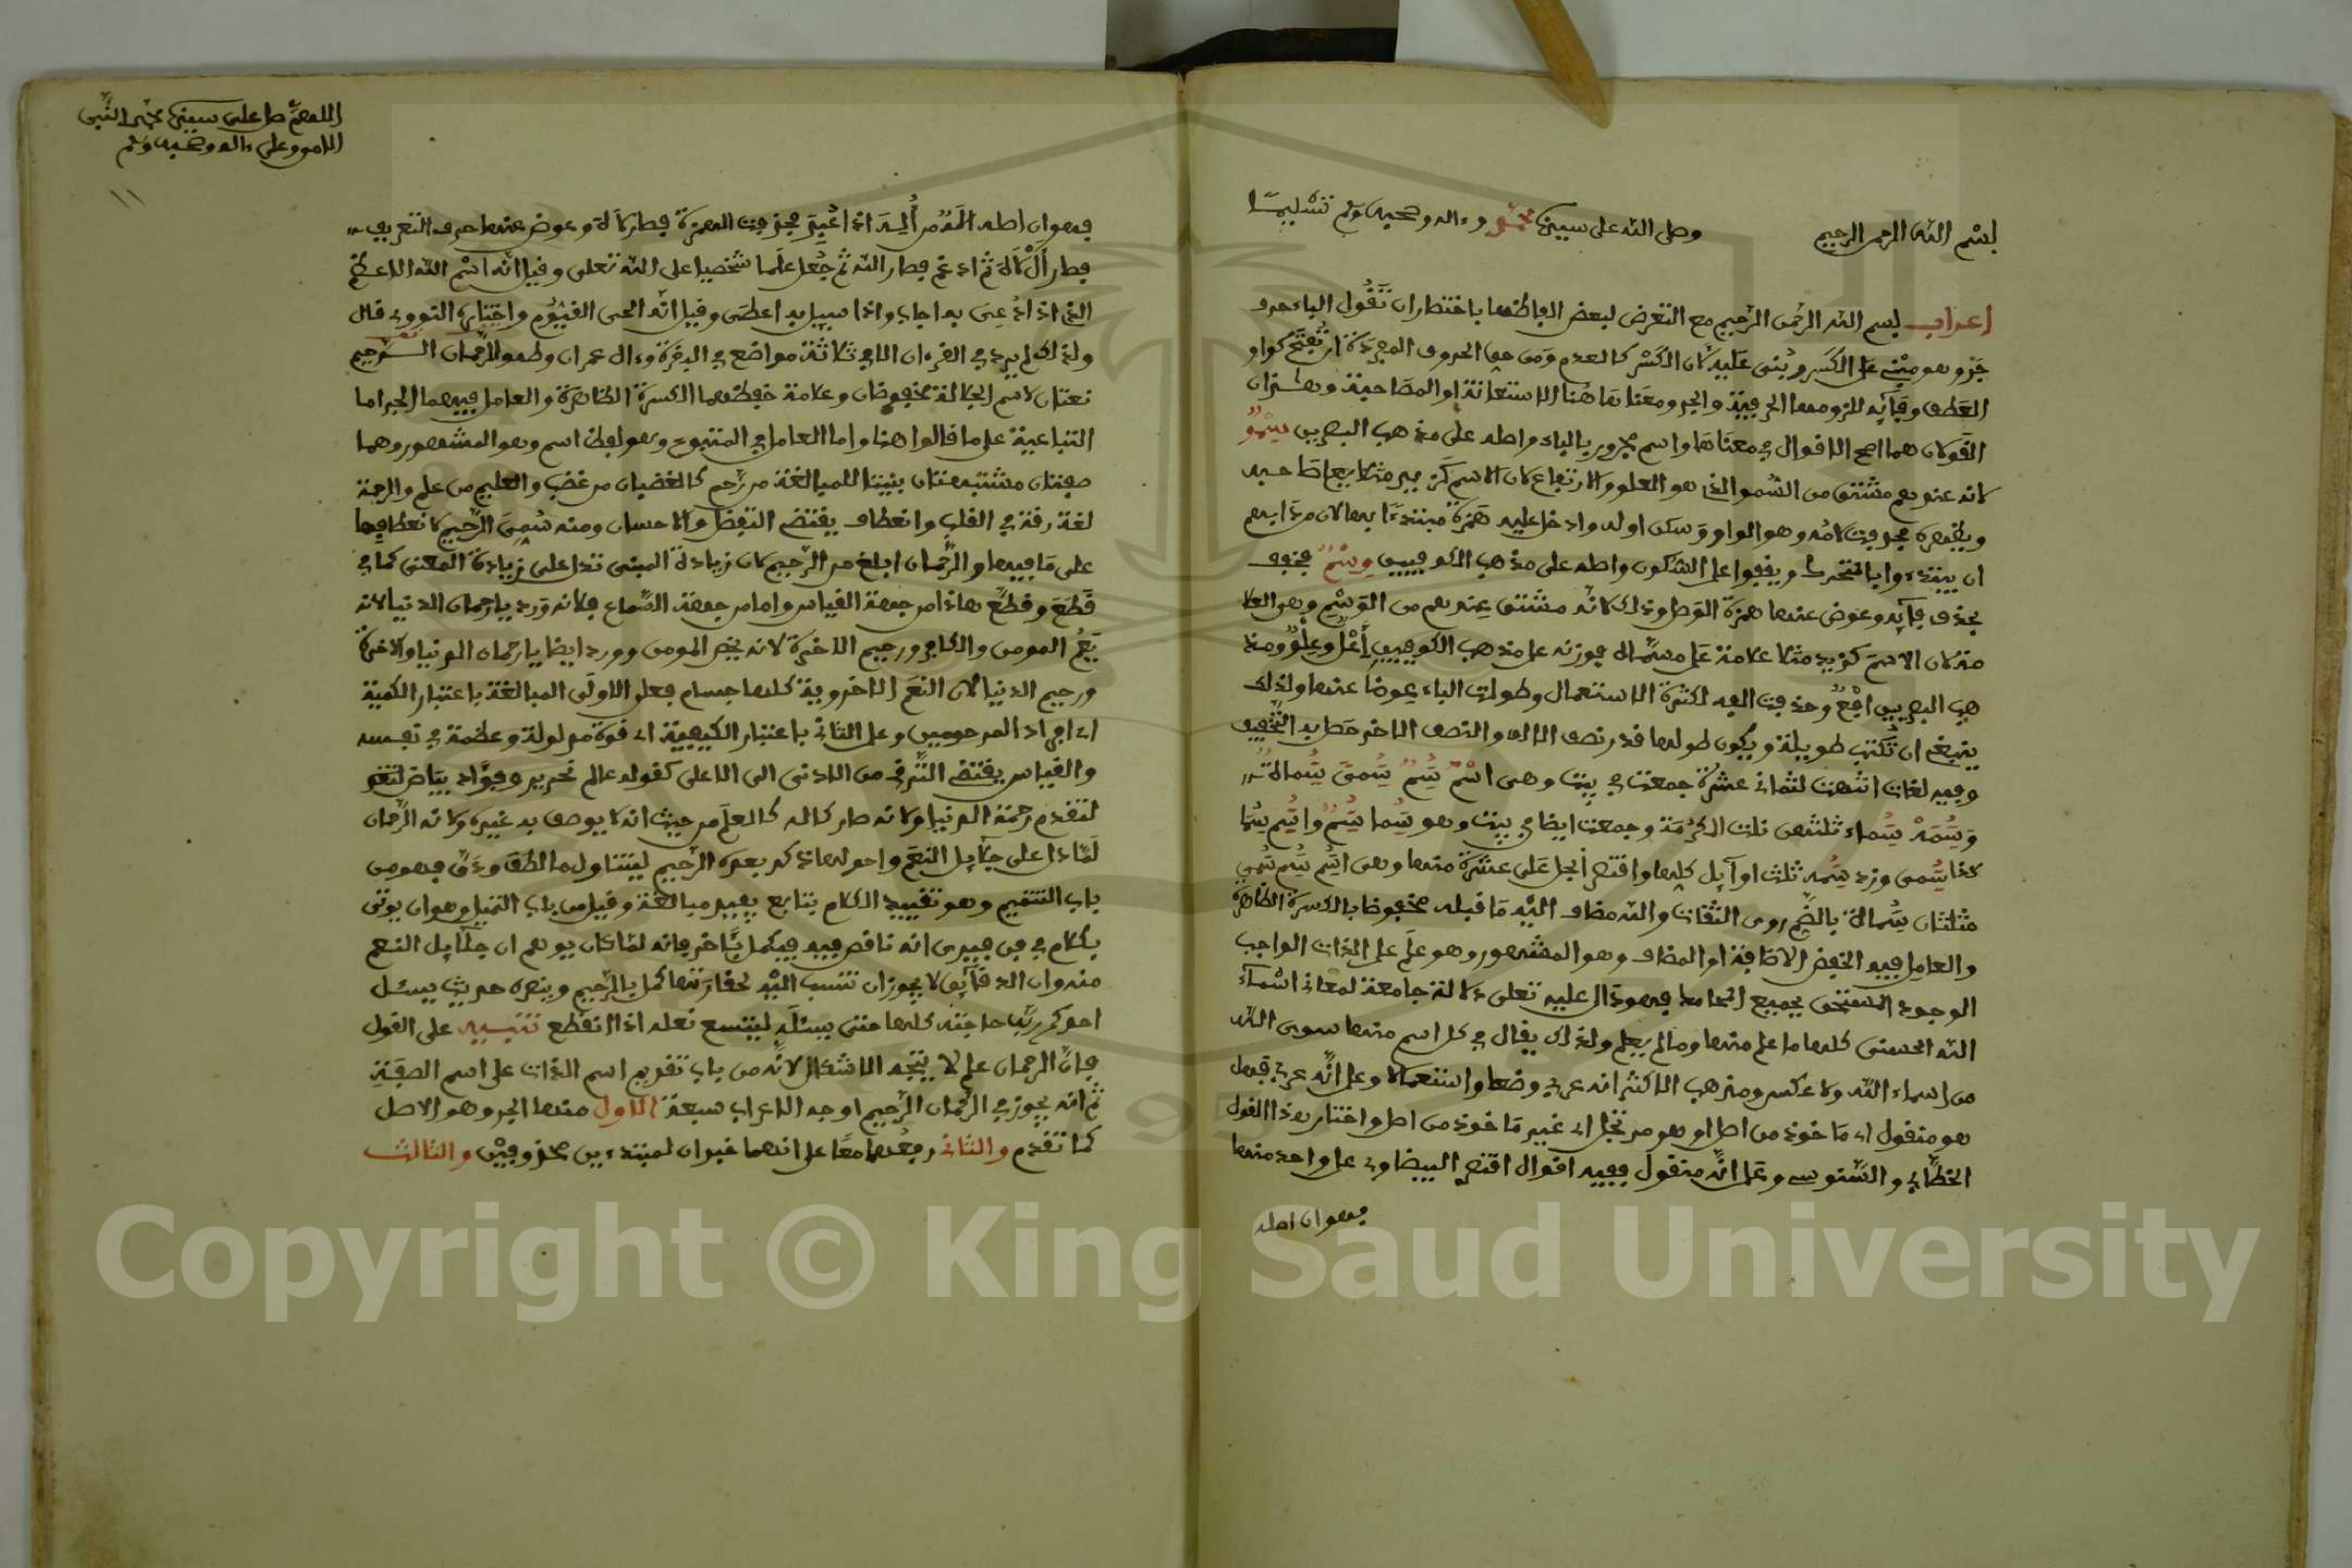 بسم الله الرحمن الرحيم وصلى الله على سيدنا محمد وءاله وصحبه وسلم تسليما
اعراب بسم الله الرحمن الرحيم مع التعرض لبعض الفاظها باختصار ان تقول الباء حرف
جر وهو مبني على الكسر وبني عليه لان الكسر كالعدم ومن حق الحروف المجردة ان تفتح كواو
العطف وفآيه للزومها الحرفية والجر ومعناها هنا الاستعانة او المصاحبة وهذان
القولان هما اصح الاقوال في معناها واسم مجرور بالباء واصله على مذهب البصريين سمو
لانه عندهم مشتق من السمو الذي هو العلو والارتفاع لان الاسم كزيد مثلا يعلي صاحبه
ويظهره فحذفت لامه وهو الواو وسكن اوله وادخل عليه همزة مبتدءا بها لان من دابهم
ان يبتدءوا بالمتحرك ويقفوا على السكون واصله على مذهب الكوفيين وسم فخفف
بحذف فآيه وعوض عنها همزة الوصل وذلك لانه مشتق عندهم من الوسم وهو العلا
مة لان الاسم كزيد مثلا علامة على مسماه فوزنه على مذهب الكوفيين اعل وعلى مذ
هب البصريين افع وحذفت الفه لكثرة الاستعمال وطولت الباء عوضا عنها ولذلك
ينبغي ان تكتب طويلة ويكون طولها قدر نصف الالف والنصف الاخر حصل به التخفيف
وفيه لغات انتهت لثماني عشرة جمعت في بيت وهي اسم سم سمى سماة
وسمة سماء ثلثهن نلت الكرمة وجمعت ايضا في بيت وهو سما سم واسم سما
كذا سمى وزد سمه ثلث اوآيل كلها واقتصر
مثلثان سماة بالضم روى الثقات والله مضاف اليه ما قبله مخفوضا بالكسرة الظاهرة
والعامل فيه الخفض الاضافة او المضاف وهو المشهور وهو علم على الذات الواجب
الوجود المستحق لجميع المحامد فهو دال عليه تعلى دلالة جامعة لمعاني اسماء
الله الحسنى كلها ما علم منها وما لم يعلم ولذلك يقال في كل اسم منها سوى الله
من اسماء الله ولا عكس ومذهب الاكثر انه عربي وضعا واستعمالا وعلى انه عربي فهل
هو منقول اي ماخوذ من اصل او هو مرتجل اي غير ماخوذ من اصل واختار هذا القول
الخطابي والسنوسي وعلى انه منقول ففيه اقوال اقتصر البيضاوي على واحد منها
فهو ان اصله
اللهم صل على سيدنا محمد النبي
الامي وعلى ءاله وصحبه وسلم
فهو ان اصله اله من اله اذا عبد فحذفت الهمزة فصار لاه وعوض عنها حرف التعريف
فصار ال لاه ثم ادغم فصار الله ثم جعل علما شخصيا على الله تعلى وقيل انه اسم الله الاعظم
الذي اذا دعي به اجاب واذا سيل به اعطى وقيل انه الحي القيوم واختاره النووي قال
ولذلك لم يرد في القرءان الا في ثلاثة مواضع في البقرة وءال عمران وطه والرحمان الرحيم
نعتان لاسم الجلالة مخفوضان وعلامة خفضهما الكسرة الظاهرة والعامل فيهما الجر اما
التباعية على ما قالوا هنا واما العامل في المتبوع وهو لفظ اسم وهو المشهور وهما
صفتان مشتبهتان بنيتا للمبالغة من رحم كالغضبان من غضب والعليم من علم والرحمة
لغة رقة في القلب وانعطاف يقتضي التفضل والاحسان ومنه سمي الرحيم لانعطافها
على ما فيها والرحمان ابلغ من الرحيم لان زيادة المبنى تدل على زيادة المعنى كما في
قطع وقطع هذا من جهة القياس واما من جهة السماع فلانه ورد يا رحمان الدنيا لانه
يعم المومن والكافر ورحيم الاخرة لانه يخص المومن وورد ايضا يا رحمان الدنيا والاخرة
ورحيم الدنيا لان النعم الاخروية كلها جسام فعلى الاولى المبالغة باعتبار الكمية
اي افراد المرحومين وعلى الثاني باعتبار الكيفية اي قوة مدلوله وعظمة في نفسه
والقياس يقتضي الترقي من الادنى الى الاعلى كقوله عالم نحرير وجواد فياض
لتقدم رحمة الدنيا ولانه صار كاله كالعلم من حيث انه لا يوصف به غيره ولانه الرحمان
لما دل على جلآيل النعم واصولها ذكر بعده الرحيم ليتناول ما لطف ودق فهو من
باب التتميم وهو تقييد الكلام بتابع يفيد مبالغة وقيل من باب التكميل وهو ان يوتى
بكلام في فن فيرى انه ناقص فيه فيكمل بآخر فانه لما كان يوهم ان جلآيل النعم
منه وان الدقآيق لا يجوز ان تنسب اليه لحقارتها كمل بالرحيم وينصره حديث يسئل
احدكم ربه حاجته كلها حتى يسئله لشسع نعله اذا انقطع تنبيه على القول
فان الرحمان علم لا يتجه الاشكال لانه من باب تقديم اسم الذات على اسم الصفة
ثم انه يجوز في الرحمان الرحيم اوجه الاعراب سبعة الاول منها الجر وهو الاصل
كما تقدم والثاني رفعهما معا على انهما خبران لمبتدءين محذوفين والثالث
Copyright © King Saud University